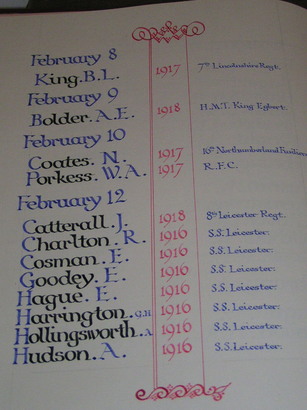 February 8
King. B.L. 1917 7th Lincolnshire Regt.
February 9
Bolder. A.E. 1918 H.M.T. King Egbert.
February 10
Coates. N. 1917 16th Northumberland Fusiliers
Porkess. W.A. 1917 R.F.C.
February 12
Catterall. J. 1918 8th Leicester Regt.
Charlton. R. 1916 S.S. Leicester.
Cosman. E. 1916 S.S. Leicester.
Goodey. E. 1916 S.S. Leicester.
Hague. E. 1916 S.S. Leicester.
Harrington. G.H. 1916 S.S. Leicester.
Hollingsworth. A 1916 S.S. Leicester.
Hudson. A. 1916 S.S. Leicester.